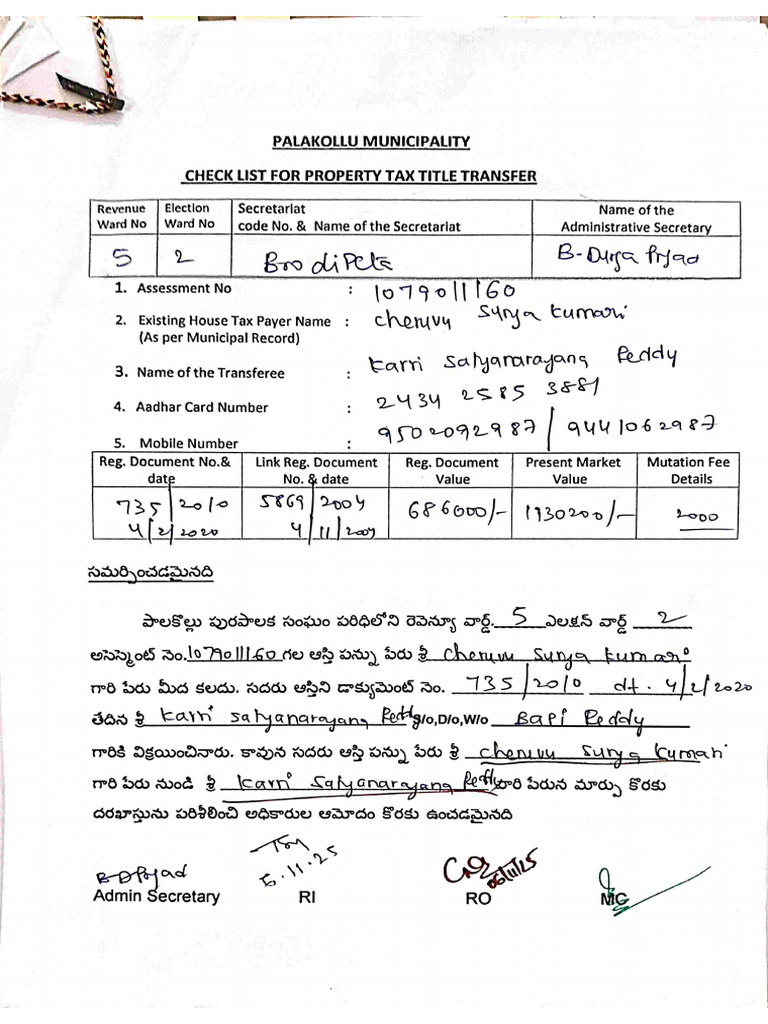 PALAKOLLU MUNICIPALITY
CHECK LIST FOR PROPERTY TAX TITLE TRANSFER
Revenue Ward No | Election Ward No | Secretariat code No. & Name of the Secretariat | Name of the Administrative Secretary
5 | 2 | Brodipeta | B-Durga Prjad
1. Assessment No : 1079011160
2. Existing House Tax Payer Name : cheruvu Surya kumari
(As per Municipal Record)
3. Name of the Transferee : Karri Satyanarayana Reddy
4. Aadhar Card Number : 2434 2585 3881
5. Mobile Number : 9502092987 / 9441062987
Reg. Document No.& date | Link Reg. Document No. & date | Reg. Document Value | Present Market Value | Mutation Fee Details
735/2010 4/2/2020 | 5869/2004 4/11/2004 | 686000/- | 1930200/- | 2000
సమర్పించడమైనది
పాలకొల్లు పురపాలక సంఘం పరిధిలోని రెవెన్యూ వార్డ్. 5 ఎలక్షన్ వార్డ్ 2
అసెస్మెంట్ నెం. 1079011160 గల ఆస్తి పన్ను పేరు శ్రీ Cheruvu Surya Kumari
గారి పేరు మీద కలదు. సదరు ఆస్తిని డాక్యుమెంట్ నెం. 735/2010 dt. 4/2/2020
తేదిన శ్రీ Karri Satyanarayana Reddy S/o,D/o,W/o Bapi Reddy
గారికి విక్రయించినారు. కావున సదరు ఆస్తి పన్ను పేరు శ్రీ cheruvu Surya Kumari
గారి పేరు నుండి శ్రీ Karri Satyanarayana Reddy వారి పేరున మార్పు కొరకు
దరఖాస్తును పరిశీలించి అధికారుల ఆమోదం కొరకు ఉంచడమైనది
B D Prjad
5.11.25
06/11/25
Admin Secretary RI RO MG